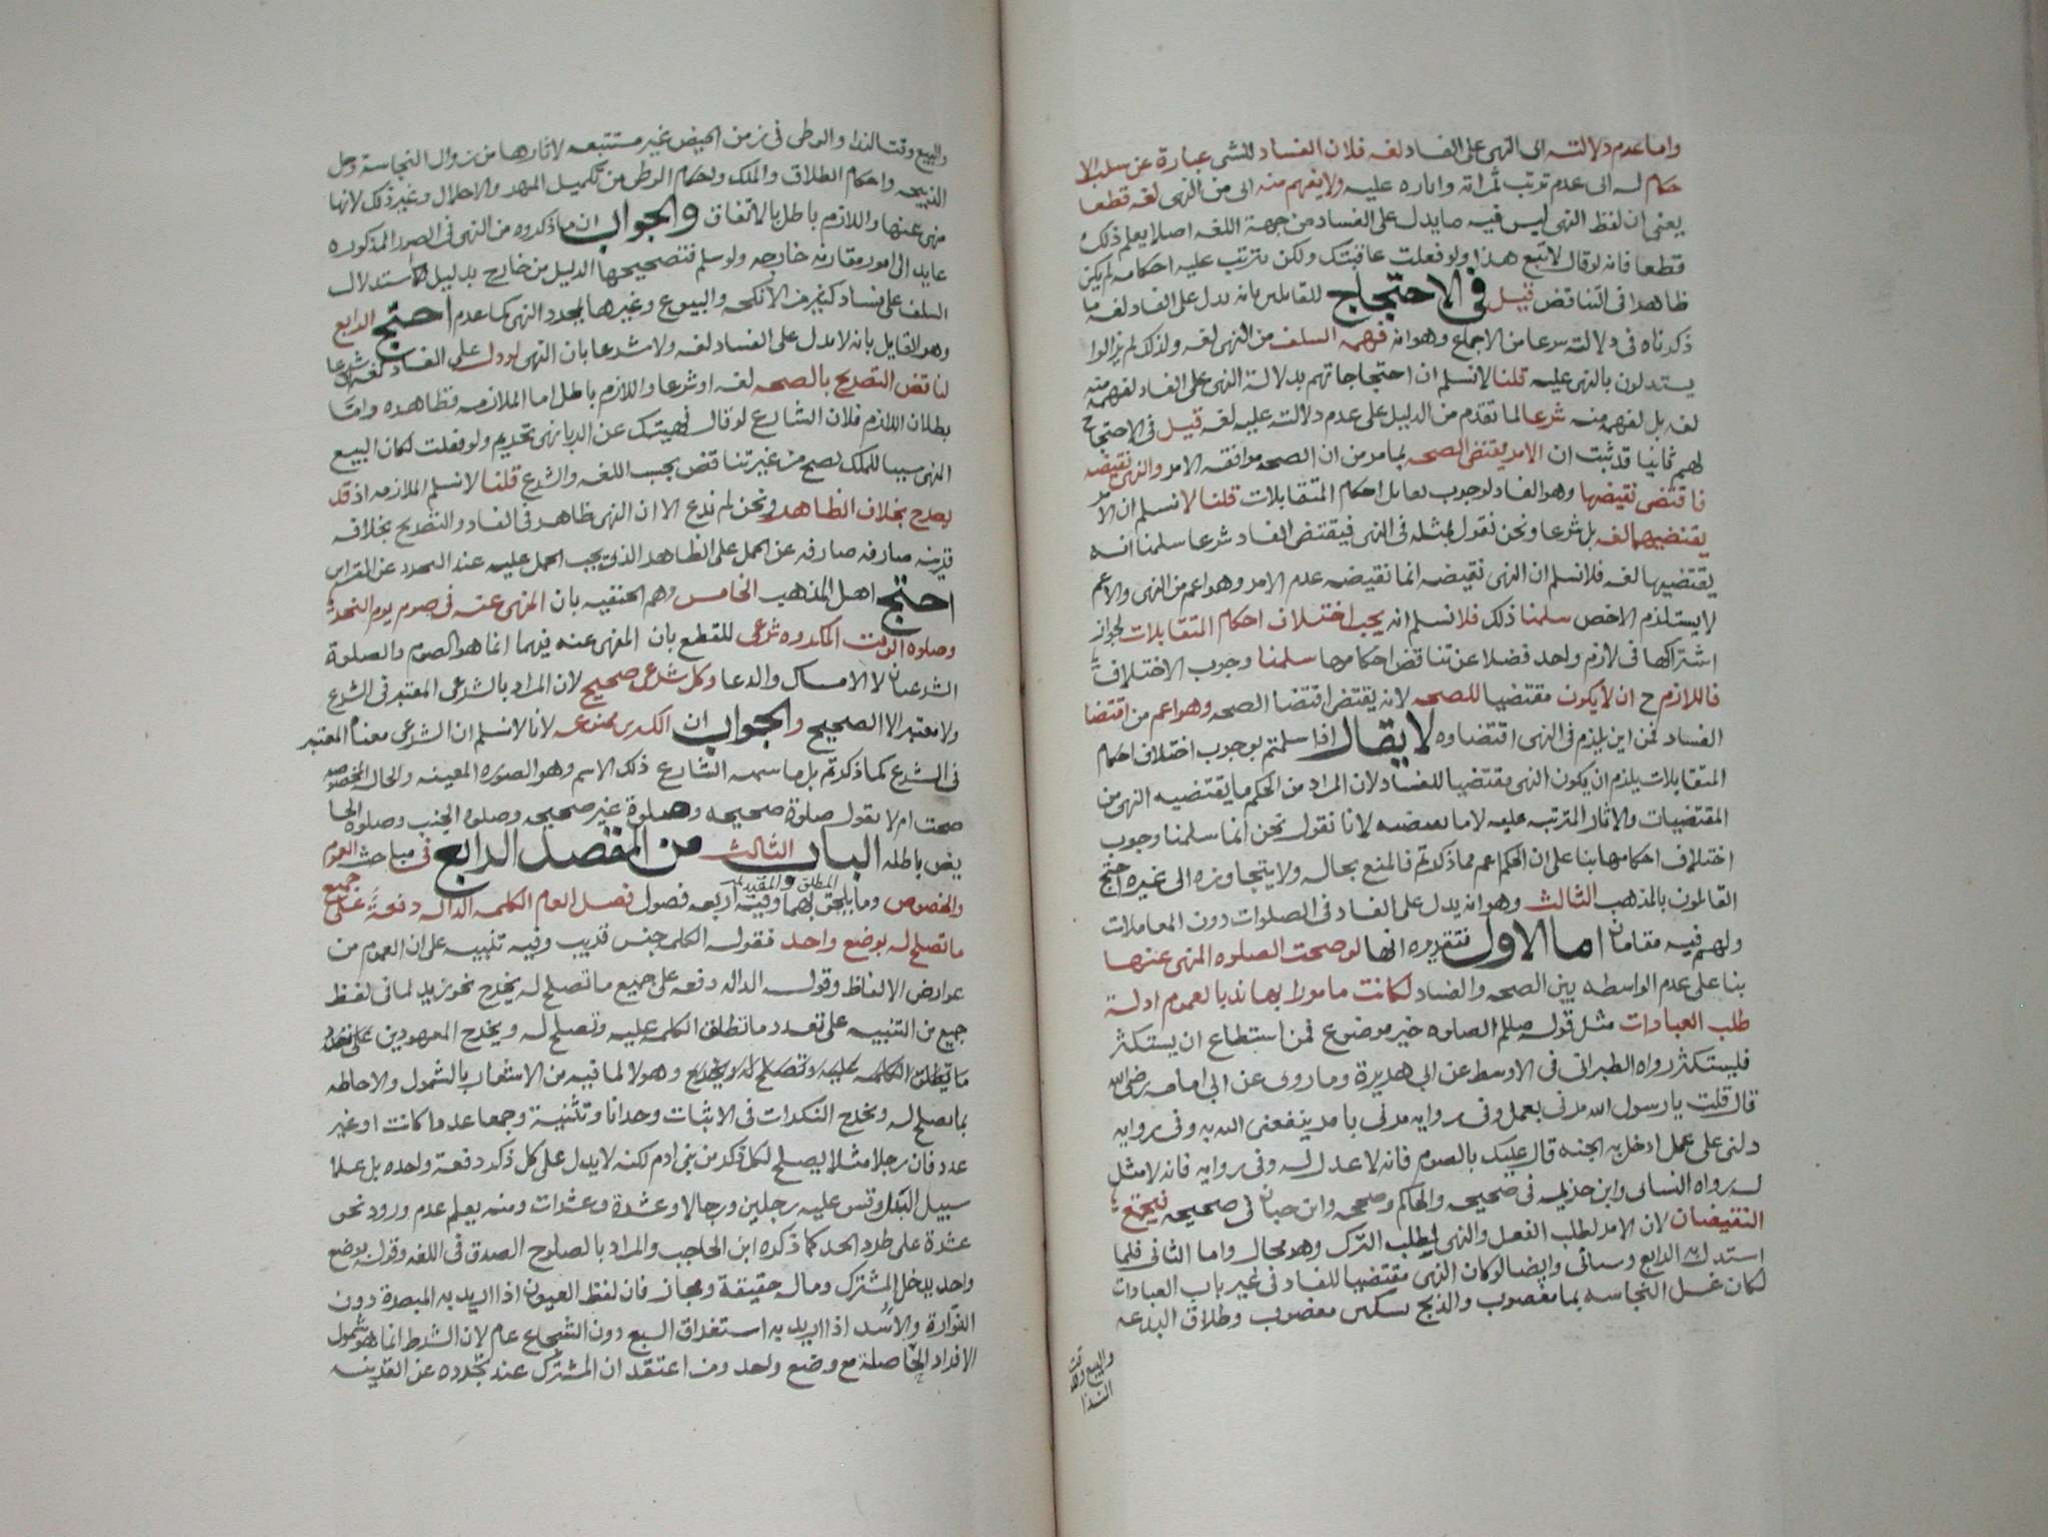 واما عدم دلالته اى النهى على الفساد لغه فلان الفساد للشى عبارة عن سلب الا
حكام له اى عدم ترتب ثمراته واثاره عليه ولا يفهم منه اى من النهى لغه قطعا
يعنى ان لفظ النهى ليس فيه ما يدل على الفساد من جهة اللغه اصلا يعلم ذلك
قطعا فانه لو قال لا تبع هذا ولو فعلت عاقبتك ولكن يترتب عليه احكامه لم يكن
ظاهرا فى التناقض قيل فى الاحتجاج للقايلين بانه يدل على الفساد لغه ما
ذكرناه فى دلالته شرعا من الاجماع وهو انه فهمه السلف من النهى لغه ولذلك لم يزالوا
يستدلون بالنهى عليه قلنا لا نسلم ان احتجاجاتهم بدلالة النهى على الفساد لفهمه منه
لغه بل لفهمه منه شرعا لما تقدم من الدليل على عدم دلالته عليه لغه قيل فى الاحتجاج
لهم ثانيا قد ثبت ان الامر يقتضى الصحه لما مر من ان الصحه موافقه الامر والنهى نقيضه
فاقتضى نقيضها وهو الفساد لوجوب تقابل احكام المتقابلات قلنا لا نسلم ان الامر
يقتضيها لغه بل شرعا ونحن نقول بمثله فى النهى فيقتضى الفساد شرعا سلمنا انه
يقتضيها لغه فلا نسلم ان النهى نقيضه انما نقيضه عدم الامر وهو اعم من النهى والاعم
لا يستلزم الاخص سلمنا ذلك فلا نسلم انه يجب اختلاف احكام المتقابلات لجواز
اشتراكها فى لازم واحد فضلا عن تناقض احكامها سلمنا وجوب الاختلاف
فاللازم ح ان لا يكون مقتضيا للصحه لانه يقتضى اقتضا الصحه وهو اعم من اقتضا
الفساد فمن اين يلزم فى النهى اقتضاوه لا يقال اذا سلمتم بوجوب اختلاف احكام
المتقابلات يلزم ان يكون النهى مقتضيا للفساد لان المراد من الحكم ما يقتضيه النهى من
المقتضيات والاثار المترتبه عليه لا ما يقتضيه لانا نقول نحن انما سلمنا وجوب
اختلاف احكامها بنا على ان الحكم اعم مما ذكرتم فالمنع بحاله ولا يتجاوزه الى غيره احتج
القائلون بالمذهب الثالث وهو انه يدل على الفساد فى الصلوات دون المعاملات
ولهم فيه مقامان اما الاول فتقديره انها لو صحت الصلوه المنهى عنها
بنا على عدم الواسطه بين الصحه والفساد لكانت مامورا بها ندبا لعموم ادلة
طلب العبادات مثل قوله صللم الصلوه خير موضوع فمن استطاع ان يستكثر
فليستكثر رواه الطبرانى فى الاوسط عن ابى هريرة وما روى عن ابى امامه رضى الله
قال قلت يا رسول الله مرنى بعمل وفى روايه مرنى بامر ينفعنى الله به وفى روايه
دلنى على عمل ادخل به الجنه قال عليك بالصوم فانه لا عدل له وفى روايه فانه لا مثل
له رواه النسائى وابن خزيمه فى صحيحه والحاكم وصححه وابن حبان فى صحيحه فيجتمع
النقيضان لان الامر لطلب الفعل والنهى لطلب الترك وهو محال واما الثانى فلما
استدل به الرابع وسيأتى وايضا لو كان النهى مقتضيا للفساد فى غير باب العبادات
لكان غسل النجاسه بما مغصوب والذبح بسكين مغصوب وطلاق البدعه
والبيع وقت
الندا
والبيع وقت الندا والوطى فى زمن الحيض غير مستتبعه لاثارها من زوال النجاسة وحل
الذبيحه واحكام الطلاق والملك واحكام الوطى من تكميل المهر والاحلال وغير ذلك لانها
منهى عنها واللازم باطل بالاتفاق والجواب ان ما ذكروه من النهى فى الصور المذكوره
عايد الى امور مقارنه خارجه ولو سلم فتصحيحها الدليل من خارج بدليل استدلال
السلف على فساد كثير من الانكحه والبيوع وغيرها بمجرد النهى كما عدم احتج الرابع
وهو القايل بانه لا يدل على الفساد لغه ولا شرعا بان النهى لو دل على الفساد لغه او شرعا
لناقض التصريح بالصحه لغه او شرعا واللازم باطل اما الملازمه فظاهره واما
بطلان اللازم فلان الشارع لو قال نهيتك عن الربا نهى تحريم ولو فعلت لكان البيع
المنهى سببا للملك لصح من غير تناقض بحسب اللغه والشرع قلنا لا نسلم الملازمه اذ قد
يصرح بخلاف الظاهر ونحن لم ندع الا ان النهى ظاهر فى الفساد والتصريح بخلافه
قرينه صارفه صارفه عن الحمل على الظاهر الذى يجب الحمل عليه عند التجرد عن القراين
احتج اهل المذهب الخامس وهم الحنفيه بان المنهى عنه فى صوم يوم النحر
وصلوه الوقت المكروه شرعى للقطع بان المنهى عنه فيهما انما هو الصوم والصلوة
الشرعيان لا الامساك والدعا وكل شرعى صحيح لان المراد بالشرعى المعتبر فى الشرع
ولا معتبر الا الصحيح والجواب ان الكبرى ممنوعه لانا لا نسلم ان الشرعى معناه المعتبر
فى الشرع كما ذكرتم بل ما سمه الشارع ذلك الاسم وهو الصوره المعينه والحاله المخصوصه
صحت ام لا نقول صلوة صحيحه وصلوة غير صحيحه وصلوه الجنب وصلوه الحا
يض باطله الباب الثالث من المقصد الرابع فى مباحث العموم
والخصوص وما يلحق بهما المطلق والمقيد وفيه اربعه فصول فصل العام الكلمه الداله دفعة على جميع
ما تصلح له بوضع واحد فقوله الكلمه جنس قريب وفيه تنبيه على ان العموم من
عوارض الالفاظ وقوله الداله دفعه على جميع ما تصلح له يخرج نحو زيد لما فى لفظ
جميع من التنبيه على تعدد ما تطلق الكلمه عليه وتصلح له ويخرج المعهودين على تعدد
ما تطلق الكلمه عليه وتصلح له ويخرج وهولا لما فيه من الاشعار بالشمول والاحاطه
بما تصلح له ويخرج النكرات فى الاثبات وحدانا وتثنية وجمعا عددا كانت او غير
عدد فان رجلا مثلا يصلح لكل ذكر من بنى ادم لكنه لا يدل على كل ذكر دفعة واحده بل على
سبيل البدل وقس عليه رجلين ورجالا وعشرة وعشرات ومنه يعلم عدم ورود نحو
عشرة على طرد الحد كما ذكره ابن الحاجب والمراد بالصلوح الصدق فى اللغه وقوله بوضع
واحد يدخل المشترك وماله حقيقة ومجاز فان لفظ العيون اذا اريد به المبصرة دون
الفوارة والاسد اذا اريد به استغراق السبع دون الشجاع عام لان الشرط انما هو شمول
الافراد الحاصلة مع وضع واحد ومن اعتقد ان المشترك عند تجرده عن القرينه